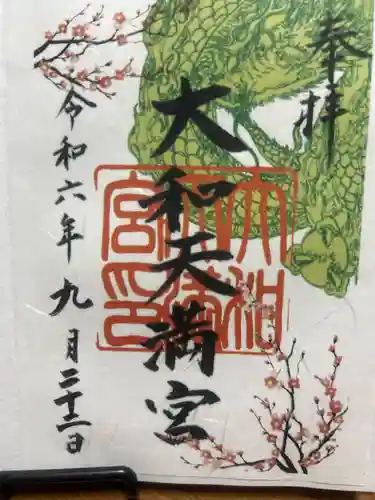 奉拝
大和天満宮
大和天満宮印
令和六年九月二十二日